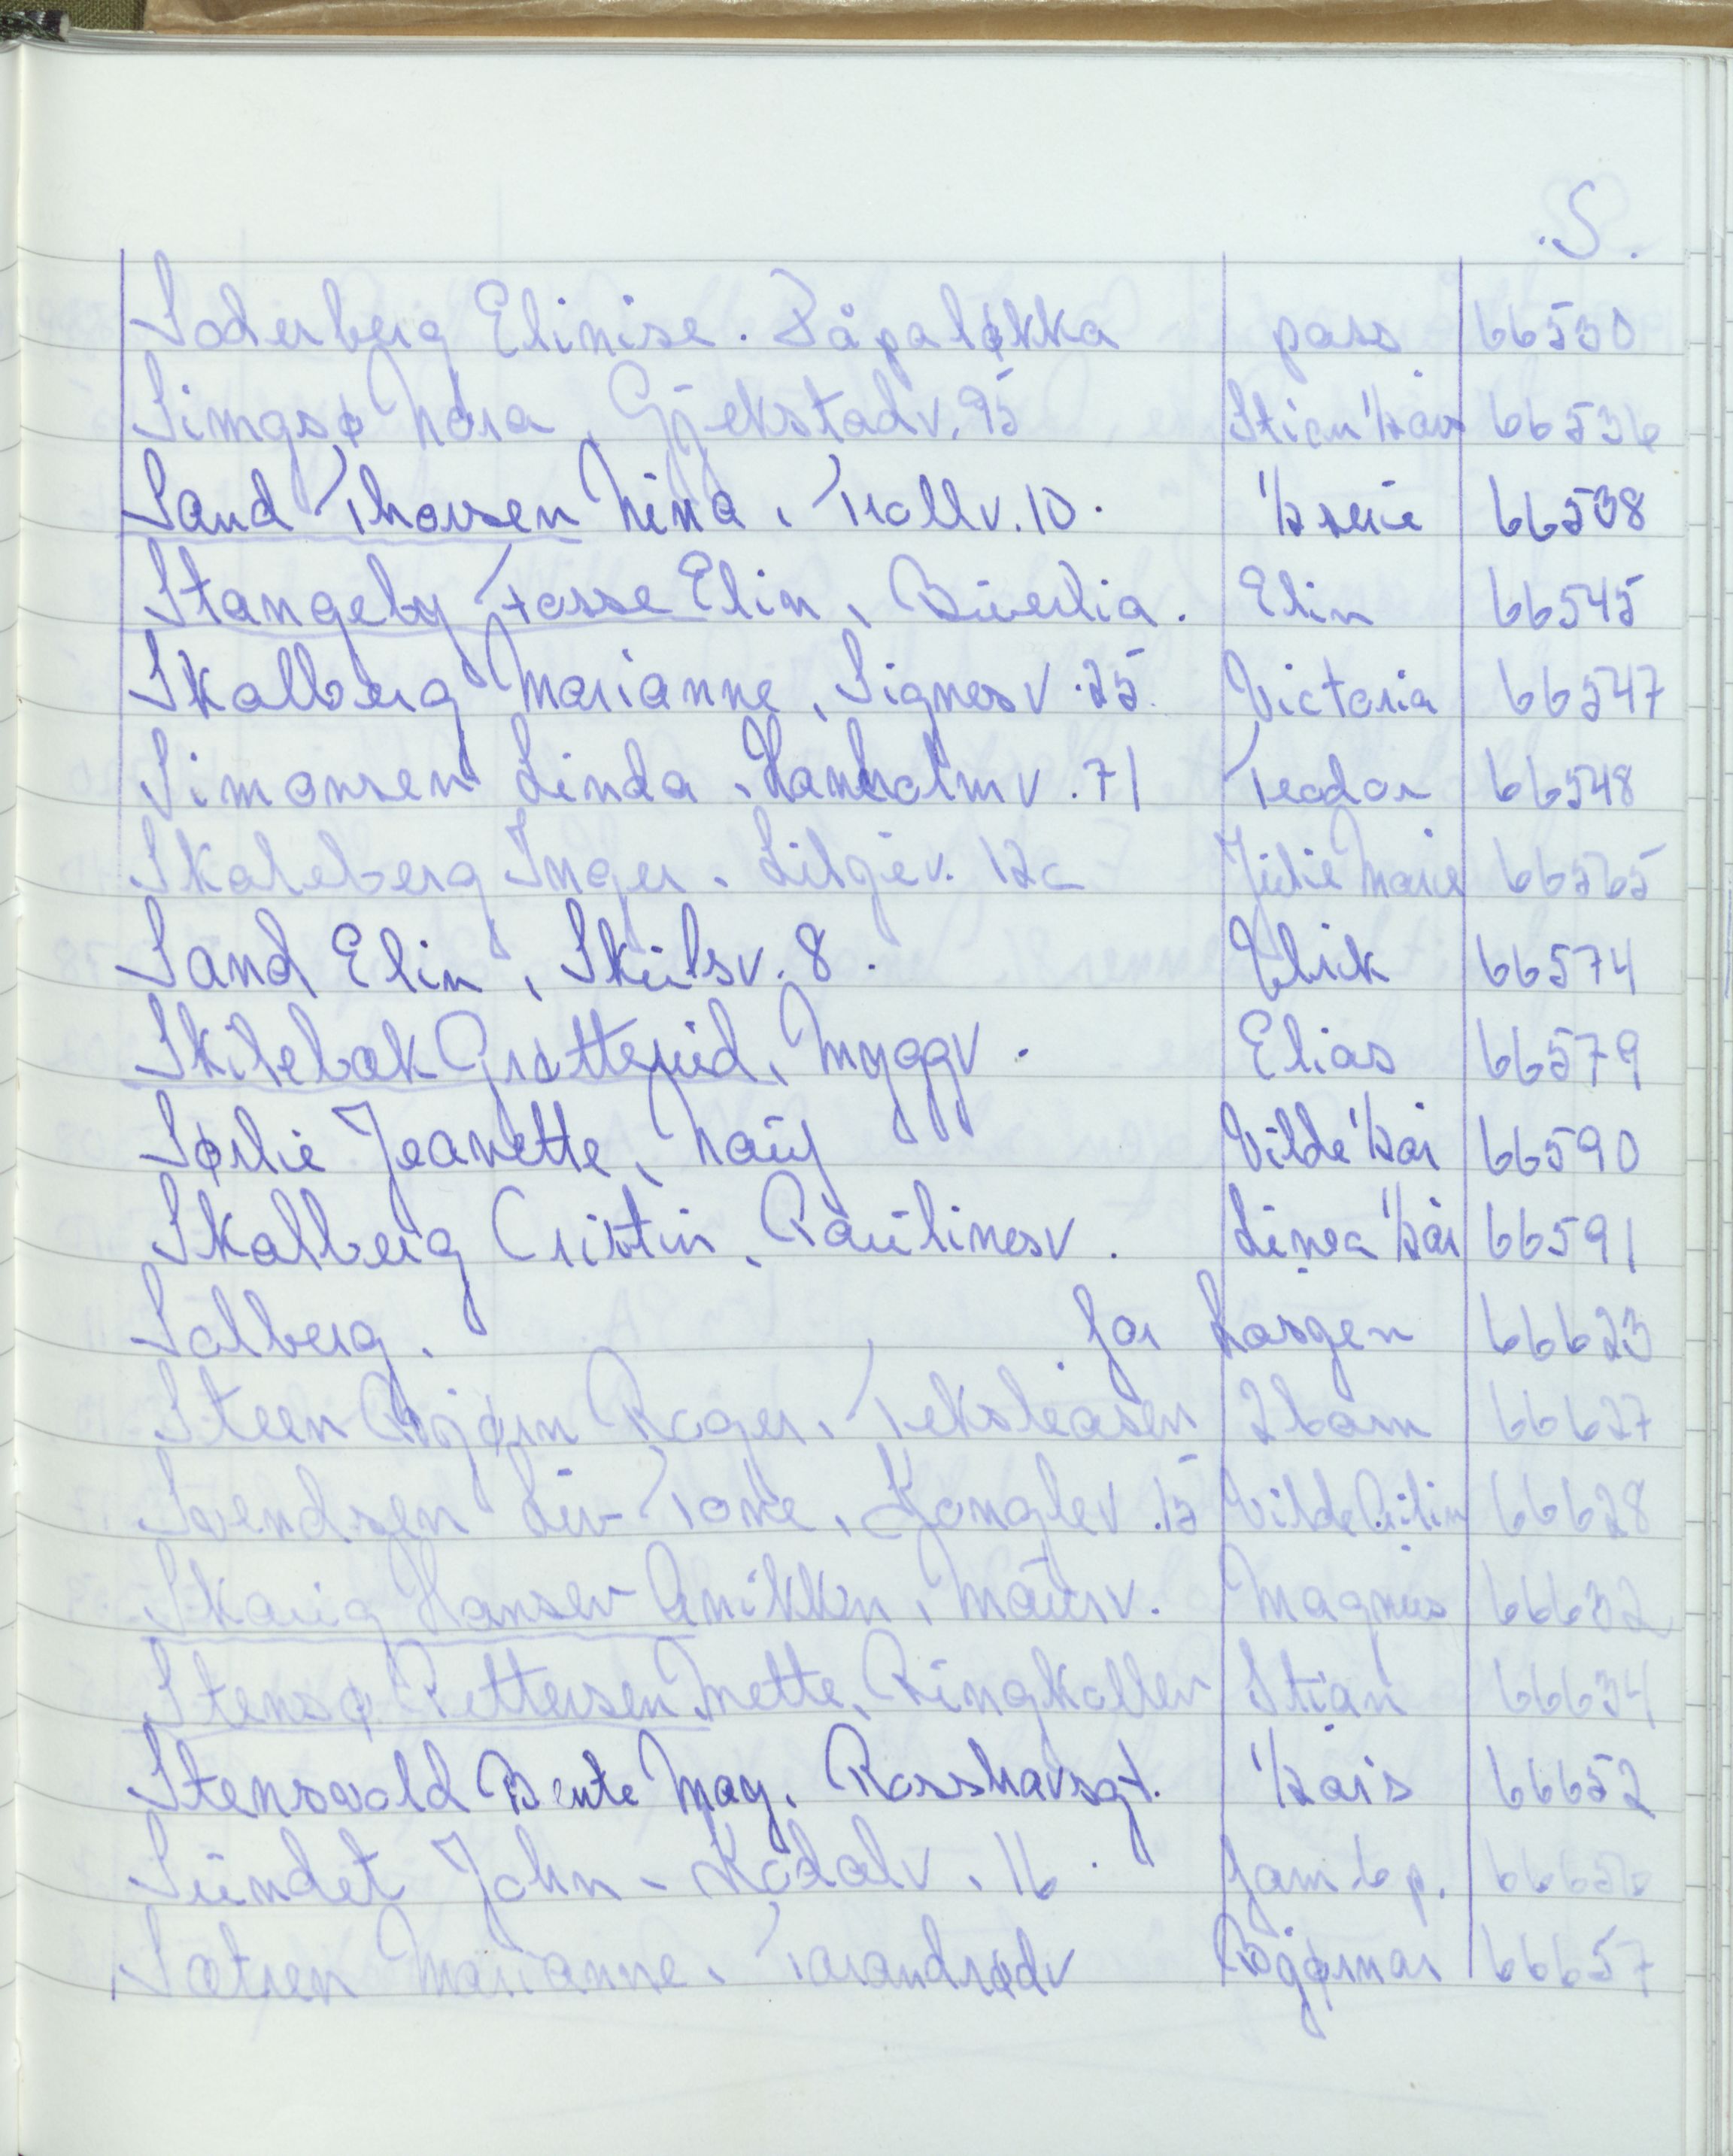 .S.
Soderberg Elinise. Såpaløkka pass 66530
Simgsø Nora, Gjekstadv. 95 66536
Sand Thorsen Nina, Trollv. 10. 66538
Stangeby Fosse Elin, Elin 66545
Skalberg Marianne, Signesv. 25. Victoria 66547
Simonsen Linda. v. 71 Teodor 66548
Skaleberg Inger. Liljev. 12c Julie Marie 66565
Sand Elin, Skülsv. 8. Ulrik 66574
Skilebak Grøtterud, Myggv. Elias 66579
Sørlie Jeanette, Vilde 66590
Skalberg Cristin, Paülinesv. Linea 66591
Solberg. for 66623
Steen Bjørn Roger, 2 barn 66627
Svendsen Liv-Tone, Konglev. 15 Vilde 66628
Skarig Hansen Anikken, Maürv. Magnus 66632
Stensø Pettersen Mette, Ringkollen Stian 66634
Stensvold Bente May. Rosshavsgt. 66652
Sündet John - Kodalv. 16. fam 6 p.
Sætren Marianne. Tarandrødv Bjørnar 66657